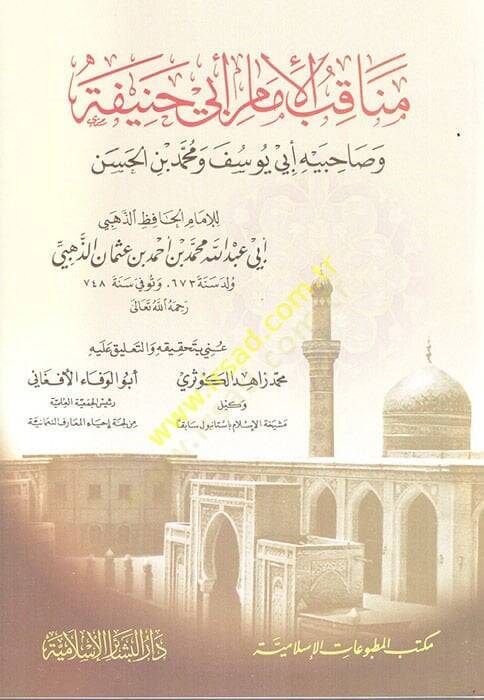 مناقب الإمام أبي حنيفة
وصاحبيه أبي يوسف ومحمد بن الحسن
للإمام الحافظ الذهبي
أبي عبد الله محمد بن أحمد بن عثمان الذهبي
ولد سنة ٦٧٣، وتوفي سنة ٧٤٨
رحمه الله تعالى
عني بتحقيقه والتعليق عليه
محمد زاهد الكوثري
وكيل
مشيخة الإسلام باستانبول سابقا
أبو الوفاء الأفغاني
رئيس الجمعية العلمية
من لجنة إحياء المعارف النعمانية
مكتب المطبوعات الإسلامية
دار البشائر الإسلامية